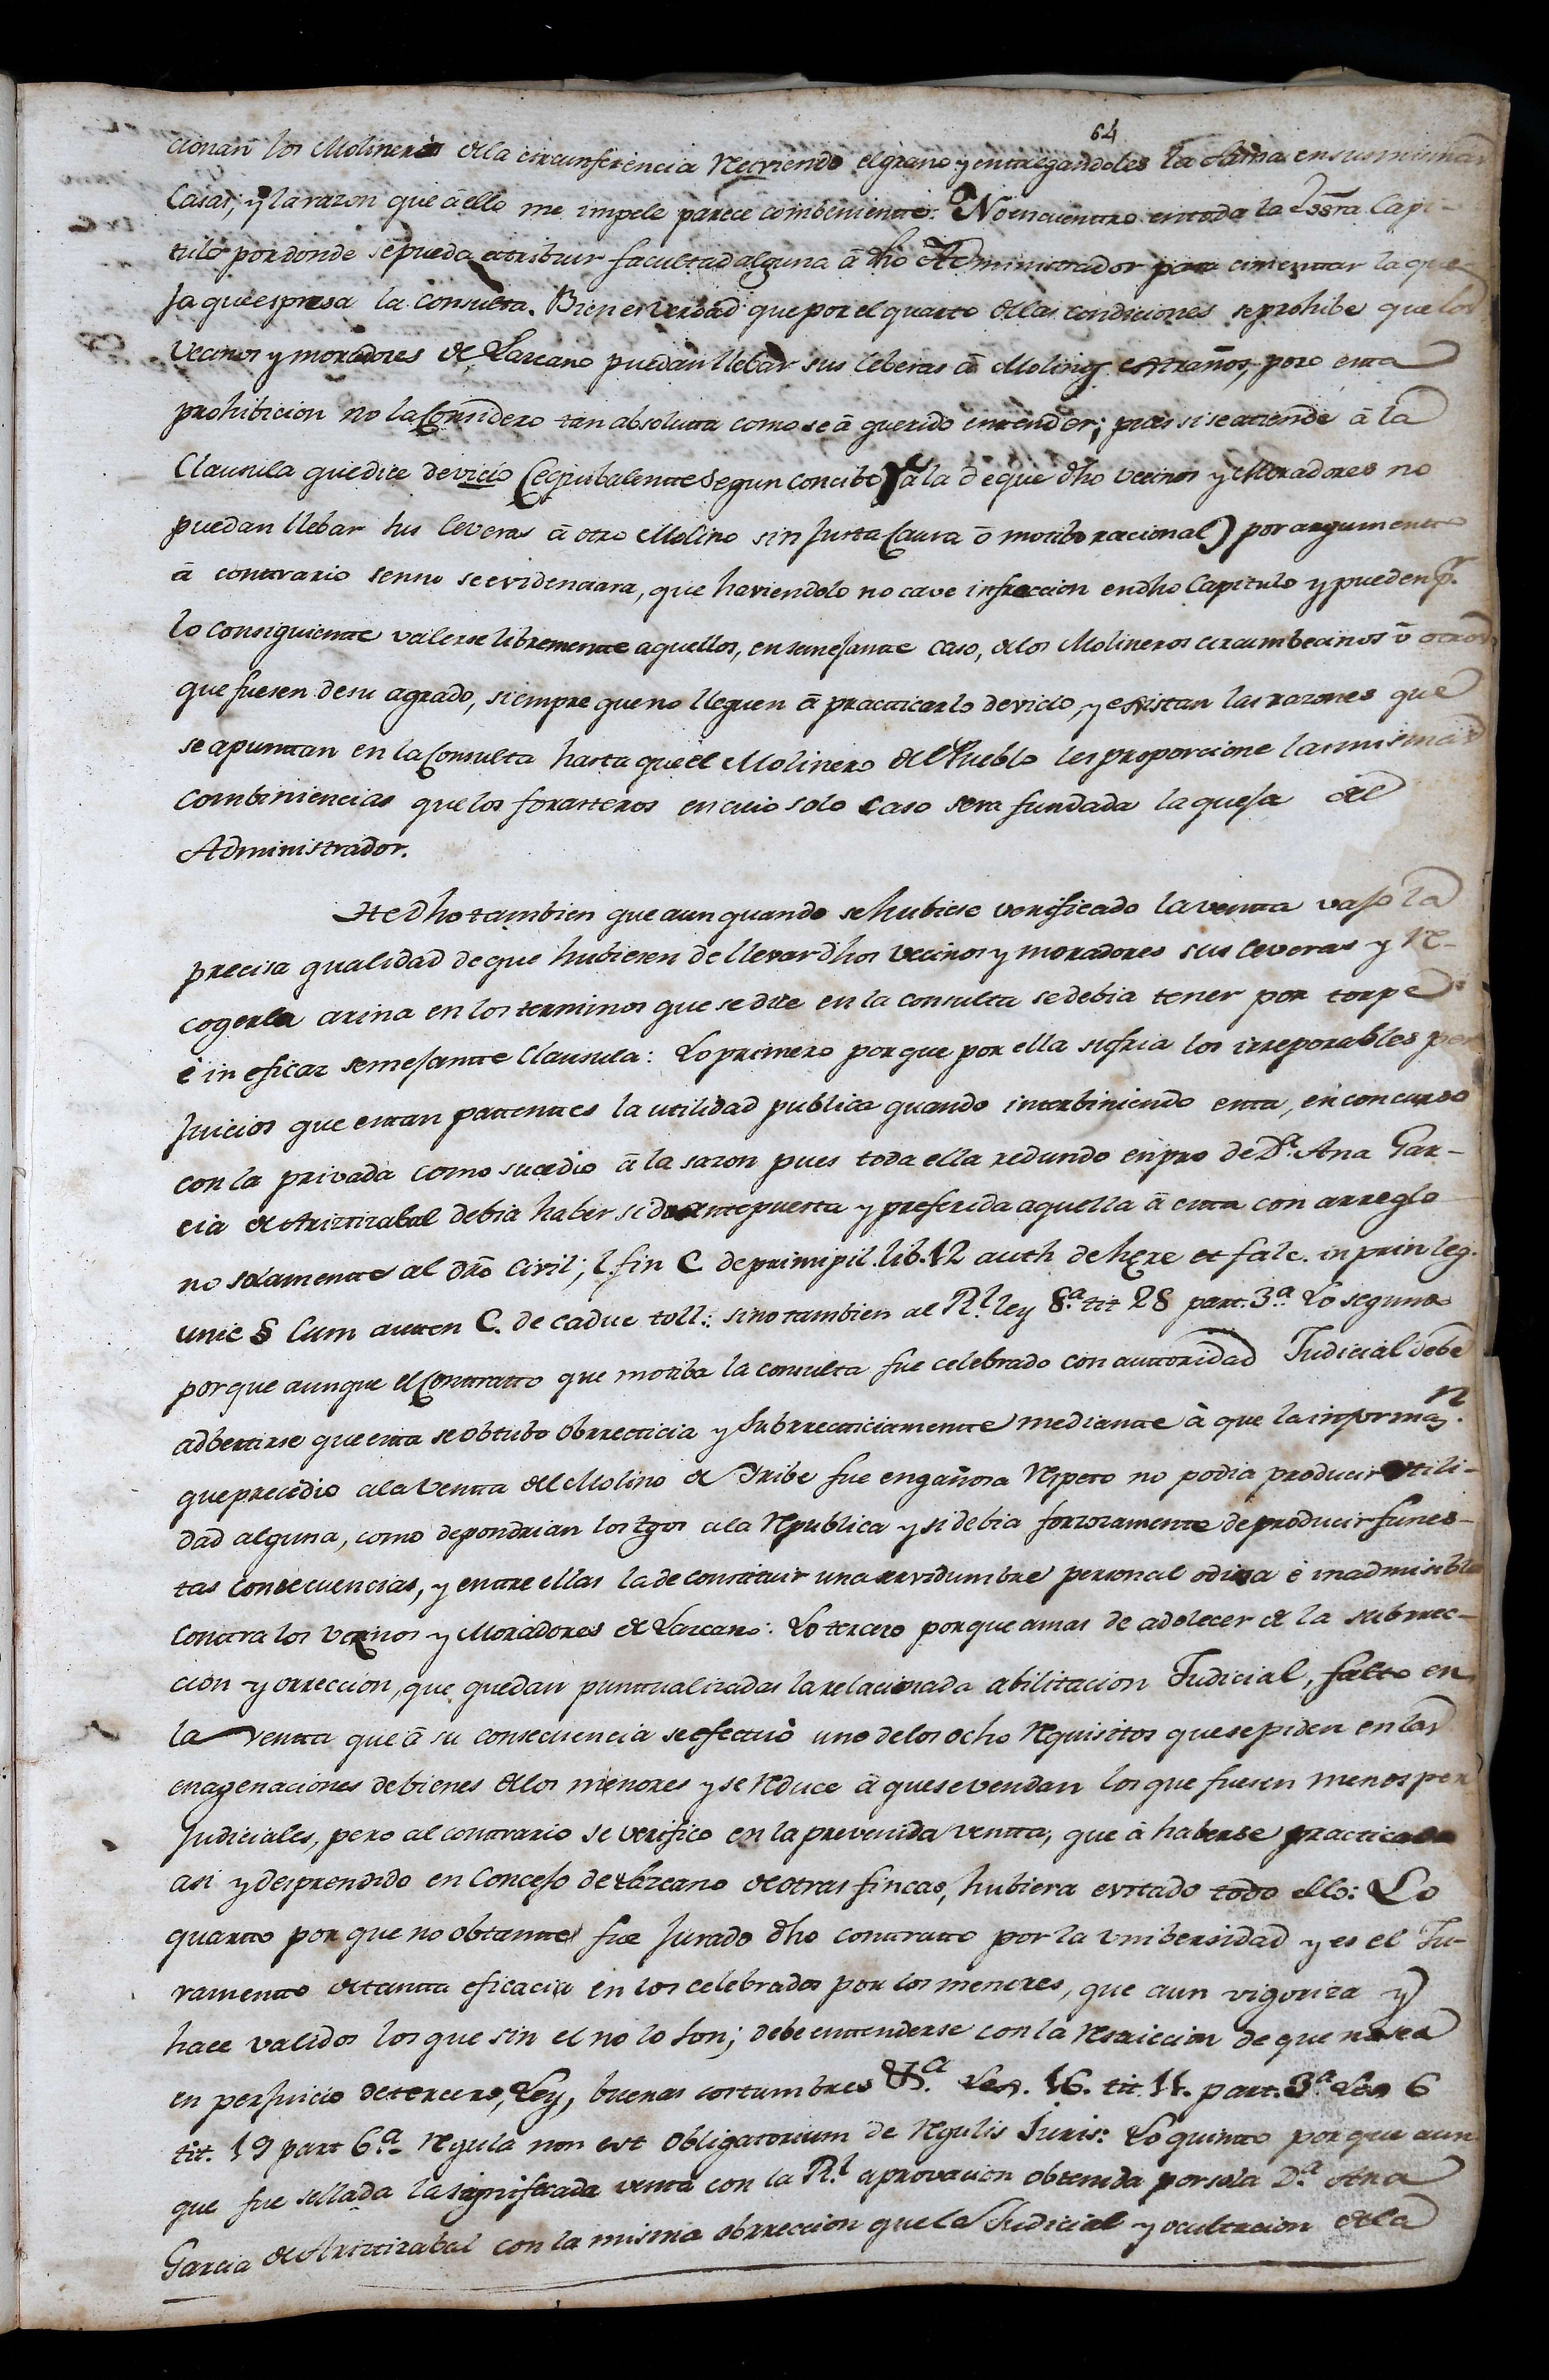 64
cionan los Molineros de la circunferencia recviendo el grano y entregandoles la Arina en sus mismas
Casas; y la razon que ā ello me impele parece combeniente: No encuentro en toda la Essra Capi-
tulo por donde se pueda atribuir facultad alguna ā dho Administrador para cimentar la que-
ja que espresa la consulta. Bien es verdad que por el quarto de las condiciones se prohibe que los
Vecinos y moradores de Lazcano puedan llebar sus Ceberas ā Molinos estraños, pero esta
prohibicion no la Considero tan absoluta como se ā querido entender; pues si se atiende ā la
Clausula que dice de vicio (equibalente segun concibo ā la de que dho vecinos y Moradores no
puedan llebar sus Ceveras ā otro Molino sin justa Causa ō motibo racional) por argumento
ā contrario senso se evidenciara, que haviendolo no cave infraccion en dho Capitulo y pueden pr.
lo consiguiente valerse libremente aquellos, en semejante caso, de los Molineros circumbecinos ō otros
que fuesen de su agrado, siempre que no lleguen ā practicarlo de vicio, y existan las razones que
se apuntan en la Consulta hasta que el Molinero del Pueblo les proporcione las mismas
combiniencias que los forasteros en cuio solo caso sera fundada la queja del
Administrador.
He dho tambien que aun quando se hubiese verificado la venta vajo la
precisa qualidad de que hubiesen de llevar dhos vecinos y moradores sus ceveras y re-
coger la arina en los terminos que se dice en la consulta se debia tener por torpe
é in eficaz semejante Clausula: Lo primero porque por ella sufria los irreporables per
juicios que estan patentes la utilidad publica quando interbiniendo esta, en concurso
con la privada como sucedio ā la sazon pues toda ella redundo en pro de Da. Ana Gar-
cia de Ariztizabal debia haber sido antepuesta y preferida aquella ā esta con arreglo
no solamente al dro Civil; l. fin C. de primipil. lib. 12 auth de here et falc. in prin leg.
unic § Cum auten C. de caduc toll.: sino tambien al Rl. ley 8.a tit 28 part. 3.a Lo segundo
por que aunque el Contrato que motiba la consulta fue celebrado con auttoridad Judicial debe
adbertirse que esta se obtubo obrrecticia y subrrecticiamente mediante à que la informaz.n
que precedio a la Venta del Molino de Yribe fue engañosa respeto no podia producir utili-
dad alguna, como depondrian los tgos a la republica y si debia forzosamente de producir funes-
tas consecuencias, y entre ellas la de constituir una servidumbre personal odiosa é inadmisible
Contra los vecinos y Moradores de Lazcano: Lo tercero porque amas de adolecer de la subrrec-
cion y orreccion, que quedan puntualizadas la relacionada abilitacion Judicial, falto en
la Venta que ā su consecuencia se efectuò uno de los ocho requisitos que se piden en las
enagenaciones de bienes de los menores y se reduce ā que se vendan los que fuesen menos per
judiciales, pero al contrario se verifico en la prevenida venta, que à haberse practicado
asi y desprendido en Concejo de Lazcano de otras fincas, hubiera evitado todo ello: Lo
quarto por que no obtante fue jurado dho contrato por la Unibersidad y es el Ju-
ramento de tanta eficacia en los celebrados por los menores, que aun vigoriza y
hace validos los que sin el no lo son; debe entenderse con la restriccion de que no sea
en perjuicio de tercero, Ley, buenas costumbres &.a Ley. 16. tit. 11. part. 3.a Ley 6
tit. 19 part 6.a regula non est obligatorium de regulis juris: Lo quinto por que aun
que fue sellada la significada venta con la Rl. aprovacion obtenida por sola D.a Ana
Garcia de Ariztizabal con la misma obrreccion que la Judicial y ocultacion de la